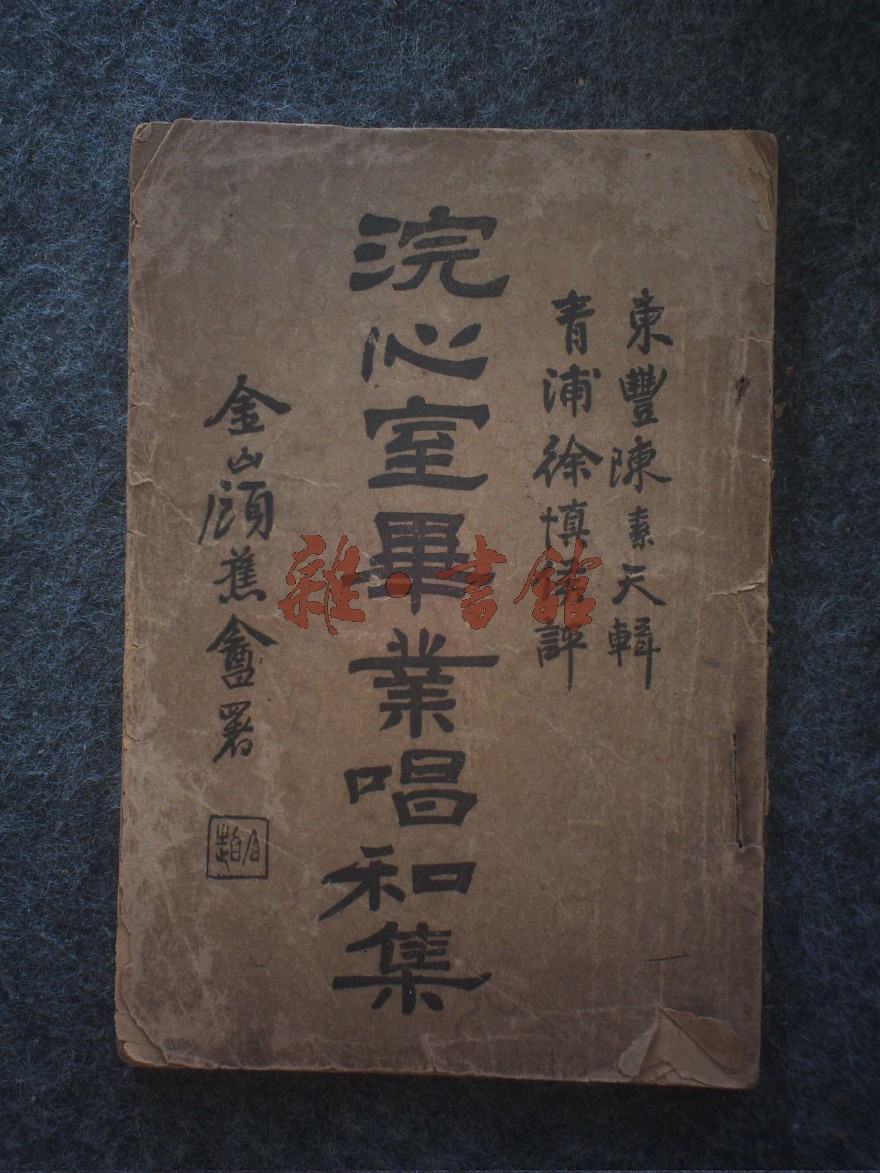 東豐陳素天輯
青浦徐慎侯評
浣心室畢業唱和集
金山顧蕉盦署
雜·書館